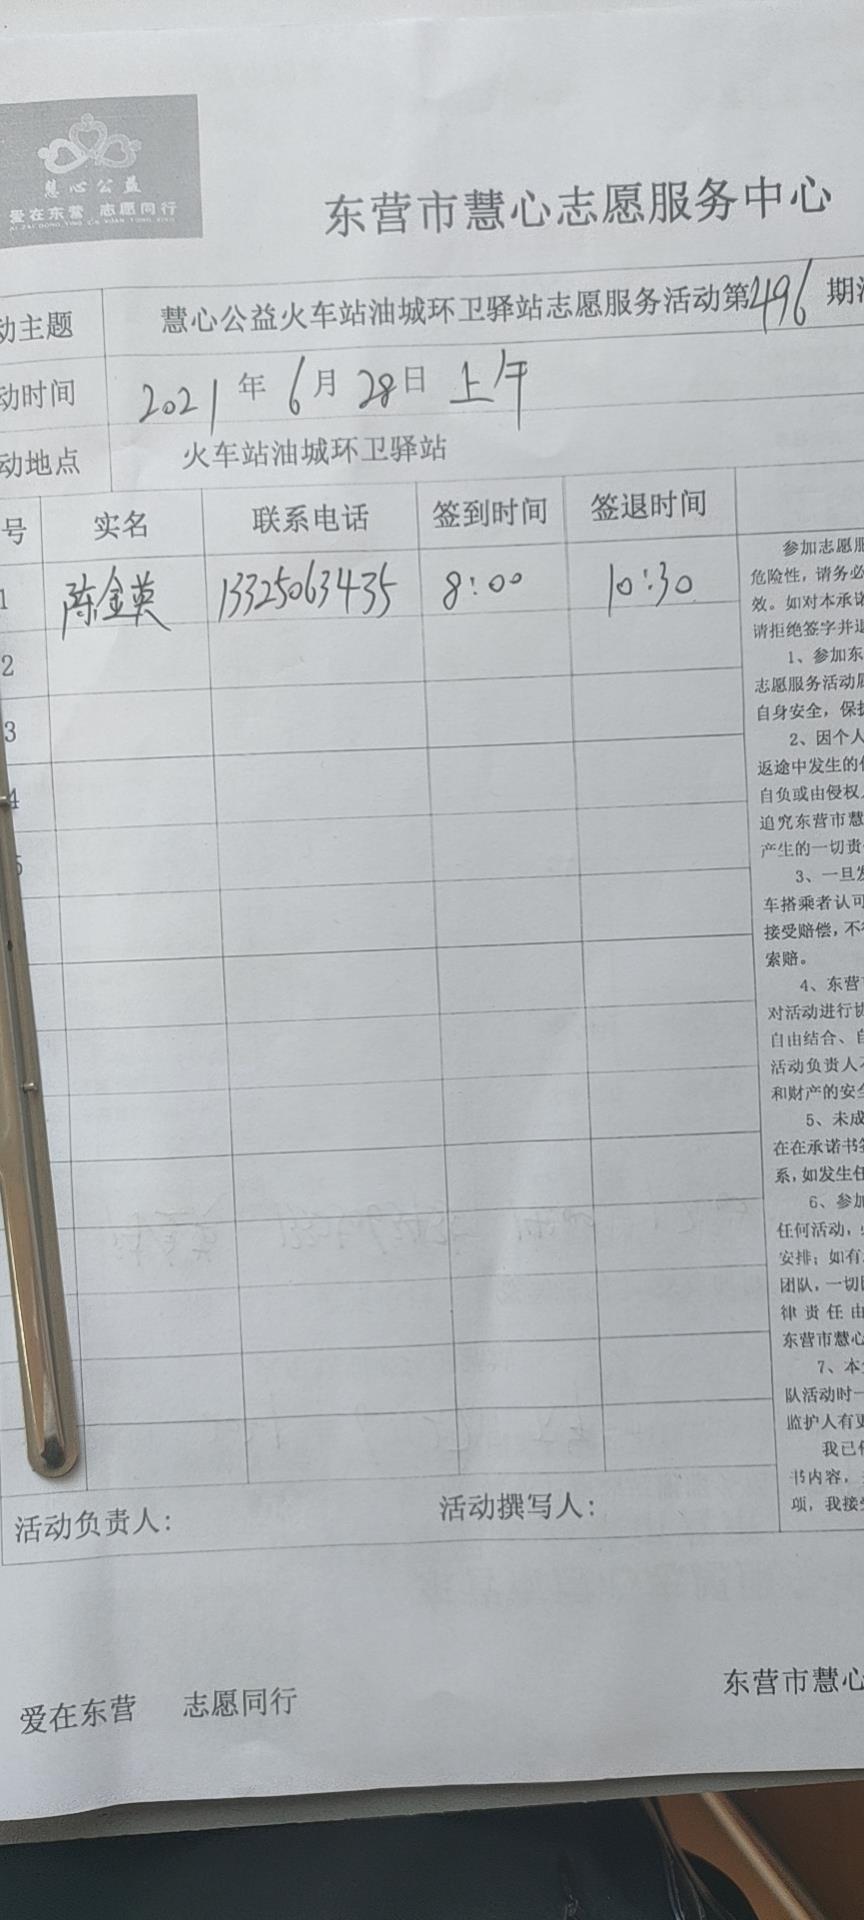 慧心公益
爱在东营 志愿同行
东营市慧心志愿服务中心
动主题 慧心公益火车站油城环卫驿站志愿服务活动第496期
动时间 2021年6月28日 上午
动地点 火车站油城环卫驿站
号 实名 联系电话 签到时间 签退时间
1 陈金英 13325063435 8:00 10:30
2
3
4
5
参加志愿服
危险性，请务必
效。如对本承诺
请拒绝签字并退
1、参加东
志愿服务活动
自身安全，保护
2、因个人
返途中发生的
自负或由侵权
追究东营市慧
产生的一切责
3、一旦发
车搭乘者认可
接受赔偿，不
索赔。
4、东营
对活动进行协
自由结合、自
活动负责人
和财产的安全
5、未成
在在承诺书签
系，如发生任
6、参加
任何活动，
安排；如有
团队，一切
律责任由
东营市慧心
7、本
队活动时一
监护人有更
我已
书内容，
项，我接受
活动负责人： 活动撰写人：
爱在东营 志愿同行 东营市慧心